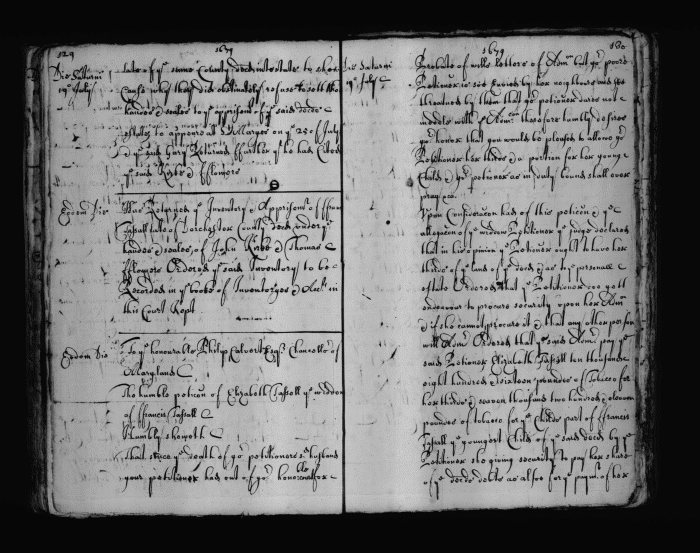 129
1679
Die Saturni
19º July
late of ye same County decd intestate to shew
Cause why they did obstinately refuse to sett their
handes & seales to ye apprismt of ye said decds
estate to appeare att St Maryes on ye 25 of July
& ye said Gary Returned
ye said Kirke & Ffloyers
Eodem Die
Was Returned ye Inventory & Apprismt of ffran
Tassall late of Dorchester County decd under ye
handes & seales of John Kirke & Thomas
Ordered ye said Inventory to be
Recorded in ye booke of Inventoryes & Accts in
this Court Kept
Eodem Die
To ye honourable Philip Calvert Esqr Chancellor of
Maryland
The humble peticon of Elizabeth Tassall ye widdow
of ffrancis Tassall
Humbly sheweth
That since ye death of yor petitioners sd husband
your petitioner had out of yor honorable
1679
180
Die Saturni
19º July
Probate of wills Letters of Admn but yor poore
Petitioner is soe Envied by her neighbours and
threatned by them that yor petitioner dares not
meddle with ye Admcon therefore humbly desires
yor honor that you would be pleased to allowe yor
Petitioner her thirds & a portion for her younge
Child & yor petitioner as in duty bound shall ever
pray &ca
Upon Consideracon had of this peticon & ye
allegacon of ye widdow Petitioner ye Judge declared
that in his opinion ye Petitioner ought to have her
thirds of ye land of ye decd & as to ye personall
estate Ordered that ye Petitioner
endeavour to procure security upon her Admn
& if she cannot procure it & that any other person
will Admr Ordered that ye said Admr pay ye
said Petitioner Elizabeth Tassall ten thousand
eight hundred & sixteen poundes of Tobacco for
her thirds & seaven thousand two hundred & eleaven
poundes of tobacco for ye Childs part of ffrancis
Tassall ye youngest Child of ye said decd by ye
Petitioner she giving security to pay her share
of ye decds debts as alsoe for ye paymt of her